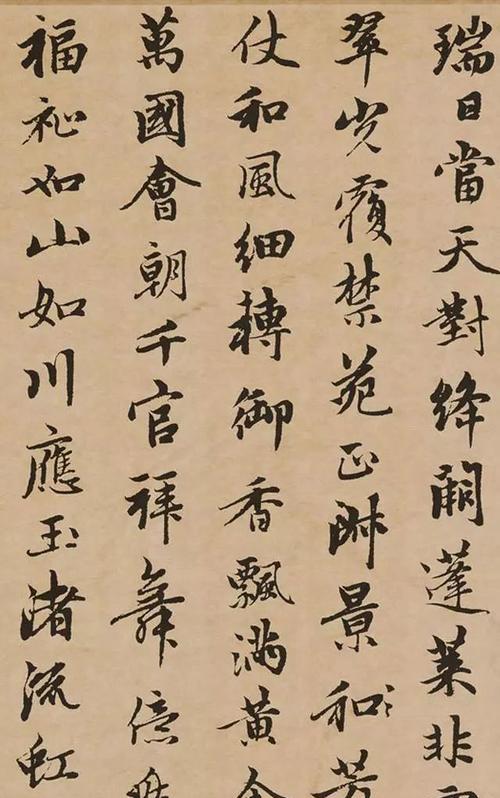 瑞日當天對絳闕蓬萊非
翠光覆禁苑正淑景和芳
仗和風細轉御香飄滿黃金
萬國會朝千官拜舞億
福祉如山如川應玉渚流虹